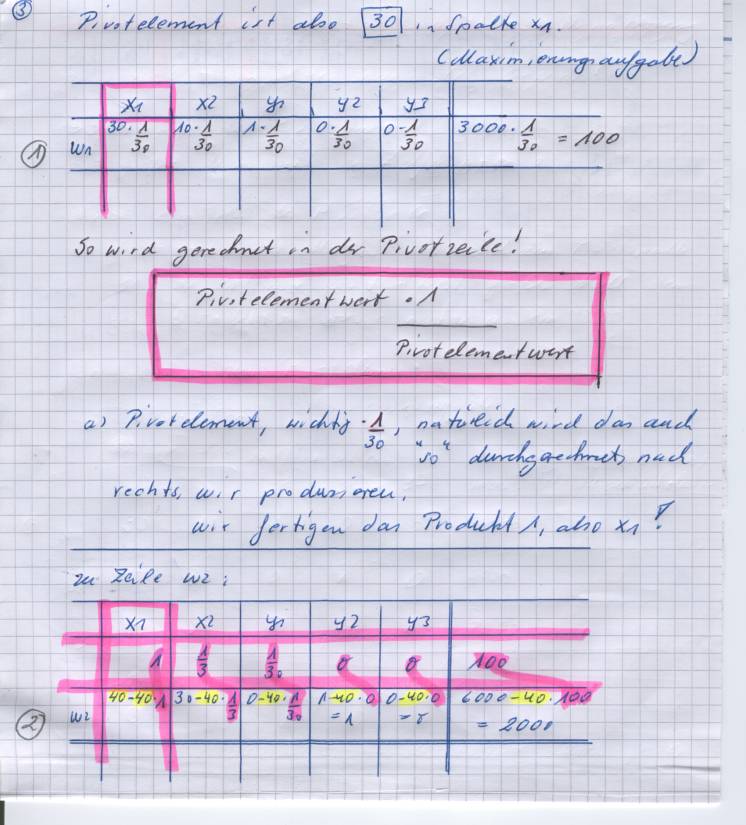 ③
Pivotelement ist also 30 in Spalte x1.
(Maximierungsaufgabe)
x1 x2 y1 y2 y3
① w1 30·1/30 10·1/30 1·1/30 0·1/30 0·1/30 3000·1/30 = 100
So wird gerechnet in der Pivotzeile!
Pivotelementwert · 1
Pivotelementwert
a) Pivotelement, wichtig ·1/30, natürlich wird das auch
"so" durchgerechnet, nach
rechts, wir produzieren,
wir fertigen das Produkt 1, also x1!
zu Zeile w2:
x1 x2 y1 y2 y3
1 1/3 1/30 0 0 100
② w2 40-40·1 30-40·1/3 0-40·1/30 1-40·0 0-40·0 6000-40·100
= 1 = 2000